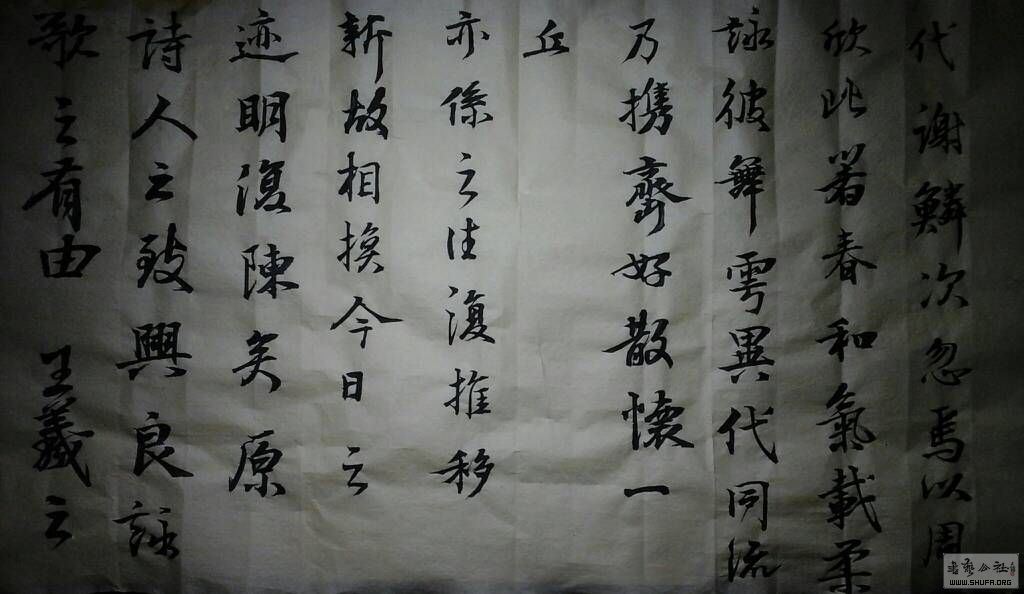 代謝鱗次忽焉以周
欣此暮春和氣載柔
詠彼舞雩異代同流
乃携齊好散懷一
丘
亦係之往復推移
新故相換今日之
迹明復陳矣原
詩人之致興良詠
歌之有由 王羲之
書藝公社
WWW.SHUFA.ORG